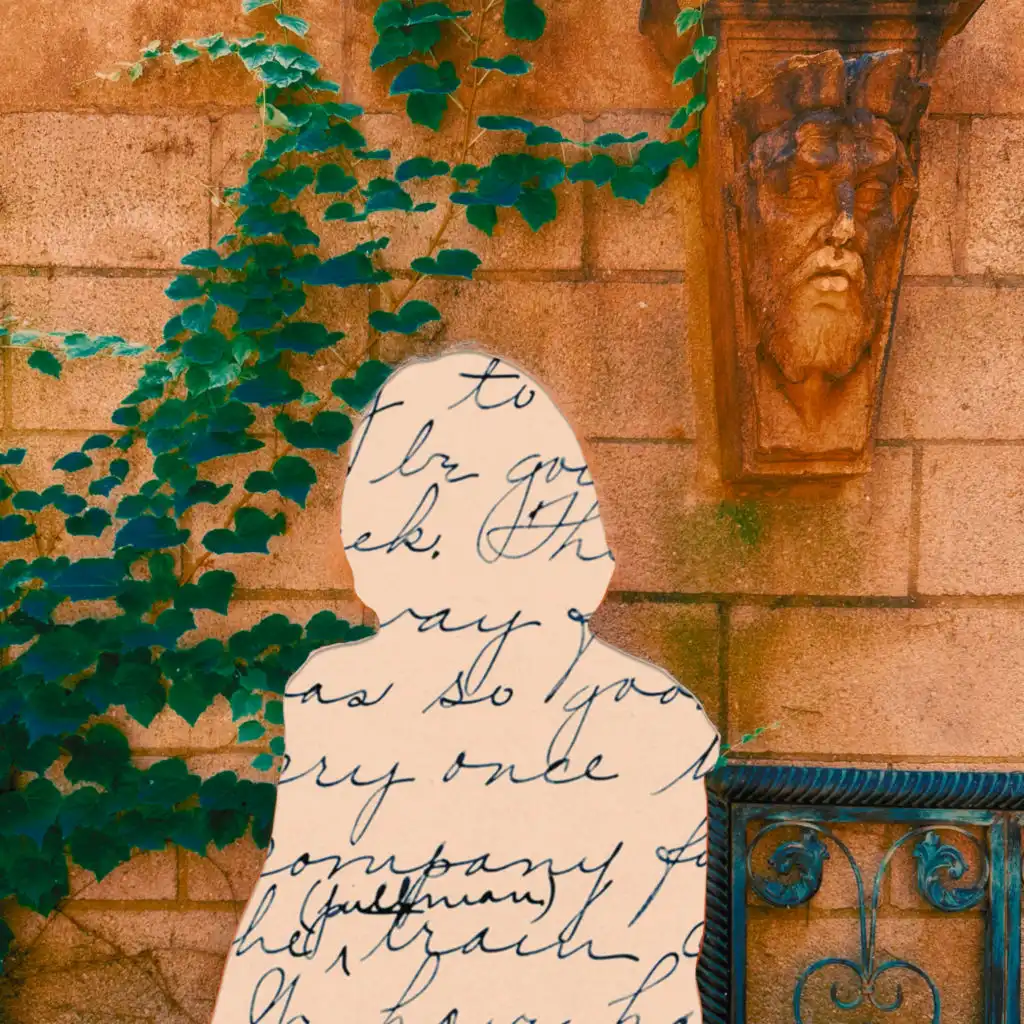 to
be goo
ek. (Th
way
as so goo
ery once
company fo
(pullman)
he, train
have ha